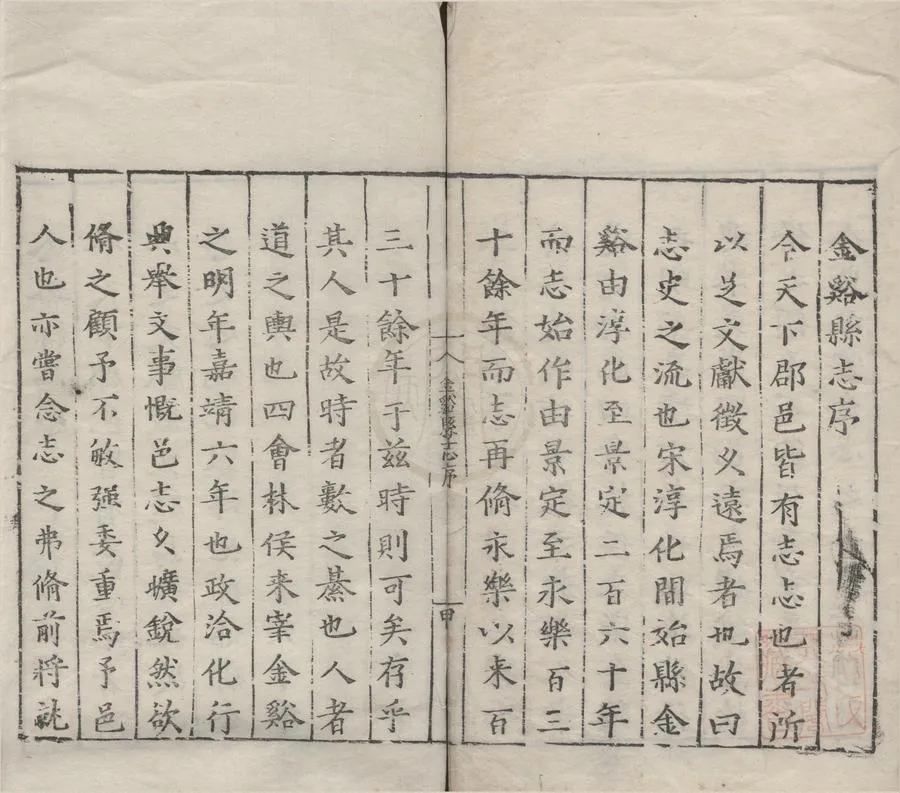 金谿縣志序
今天下郡邑皆有志志也者所
以㞢文獻徵久遠焉者也故曰
志史之流也宋淳化間始縣金
谿由淳化至景定二百六十年
而志始作由景定至永樂百三
十餘年而志再脩永樂以来百
金谿縣志序
甲
三十餘年于兹時則可矣存乎
其人是故時者數之綦也人者
道之輿也四會林侯来宰金谿
之明年嘉靖六年也政洽化行
典舉文事慨邑志久曠銳然欲
脩之顧予不敏强委重焉予邑
人也亦嘗念志之弗脩前將就